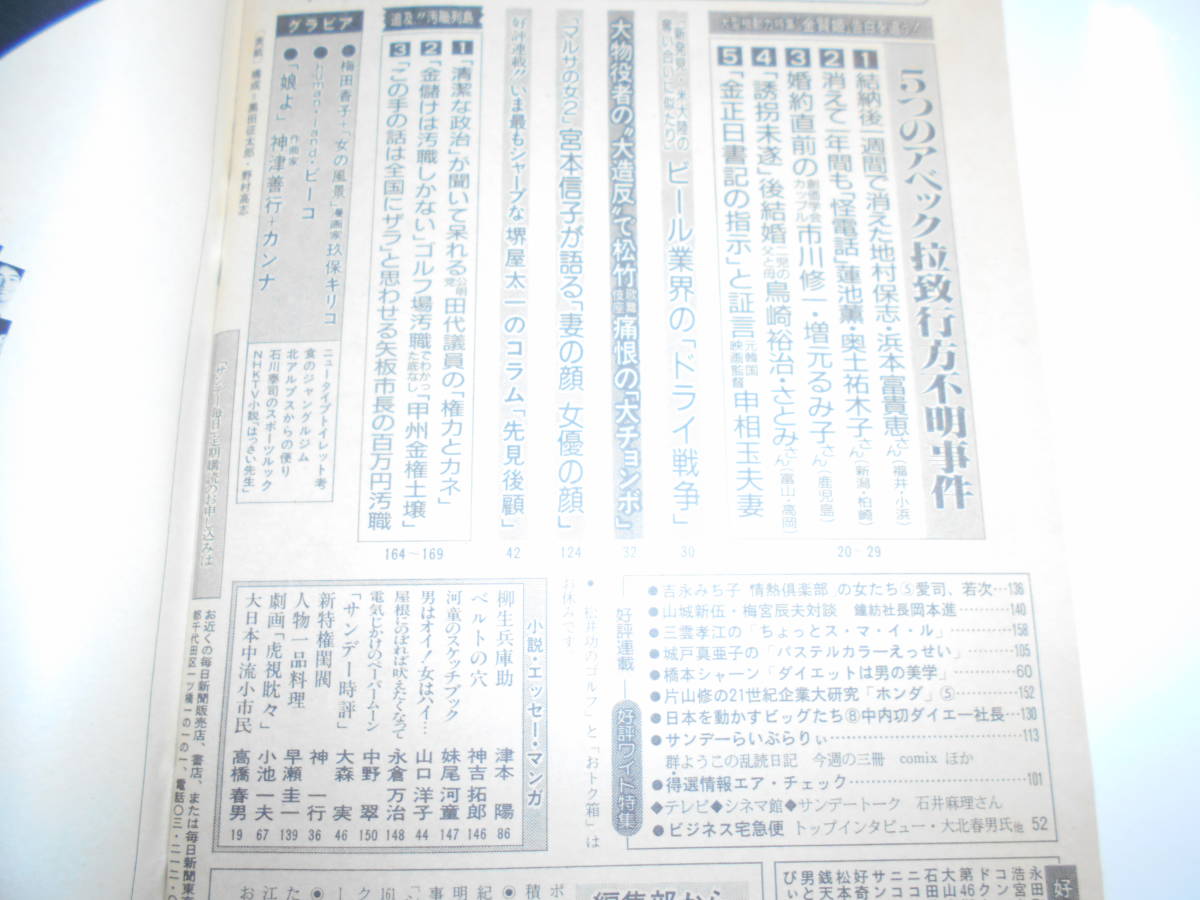 大型総力特集 金賢姫、告白を追う!
5つのアベック拉致行方不明事件
1 結納後一週間で消えた地村保志・浜本富貴恵さん(福井・小浜)
2 消えて一年間も「怪電話」蓮池薫・奥土祐木子さん(新潟・柏崎)
3 婚約直前の創価学会カップル市川修一・増元るみ子さん(鹿児島)
4 「誘拐未遂」後結婚一児の父と母鳥崎裕治・さとみさん(富山・高岡)
5 「金正日書記の指示」と証言元韓国映画監督申相玉夫妻
20〜29
「新発見・米大陸の奪い合いに似たり」ビール業界の「ドライ戦争」
30
大物役者の“大造反”で松竹歌舞伎座痛恨の「大チョンボ」
32
「マルサの女2」宮本信子が語る「妻の顔 女優の顔」
124
好評連載!!いま最もシャープな堺屋太一のコラム「先見後顧」
42
追及!!汚職列島
1 「清潔な政治」が聞いて呆れる公明党田代議員の「権力とカネ」
2 「金儲けは汚職しかない」ゴルフ場汚職でわかった底なし「甲州金権土壌」
3 「この手の話は全国にザラ」と思わせる矢板市長の百万円汚職
164〜169
グラビア
●梅田香子+「女の風景」漫画家玖保キリコ
●Human・land・ピーコ
●「娘よ」作曲家神津善行+カンナ
ニュータイプトイレット考
食のジャングルジム
北アルプスからの便り
石川泰司のスポーツルック
NHKTV小説「はっさい先生」
「表紙」構成=黒田征太郎・野村高志
「サンデー毎日」定期購読のお申し込みは
お近くの毎日新聞販売店、書店、または毎日新聞東
都千代田区一ツ橋一の一の一、電話〇三・二一二・〇
好評連載―好評ワイド特集
●吉永みち子 情熱倶楽部 の女たち⑤愛司、若次…136
●山城新伍・梅宮辰夫対談 鐘紡社長岡本進…140
●三雲孝江の「ちょっとス・マ・イ・ル」…158
●城戸真亜子の「パステルカラーえっせい」…105
●橋本シャーン「ダイエットは男の美学」…60
●片山修の21世紀企業大研究「ホンダ」⑤…152
●日本を動かすビッグたち⑧中内㓛ダイエー社長…130
●サンデーらいぶらりぃ…113
群ようこの乱読日記 今週の三冊 comix ほか
●得選情報エア・チェック…101
◆テレビ◆シネマ館◆サンデートーク 石井麻理さん
●ビジネス宅急便 トップインタビュー・大北春男氏他 52
●松井功のゴルフ」と「おトク箱」は
お休みです
小説・エッセー・マンガ
柳生兵庫助 津本陽 86
ベルトの穴 神吉拓郎 146
河童のスケッチブック 妹尾河童 147
男はオイ!女はハイ… 山口洋子 44
屋根にのぼれば吠えたくなって 永倉万治 148
電気じかけのペーパームーン 中野翠 150
「サンデー時評」 大森実 46
新特権閨閥 神一行 36
人物一品料理 早瀬圭一 139
劇画「虎視眈々」 小池一夫 67
大日本中流小市民 高橋春男 19
編集部から